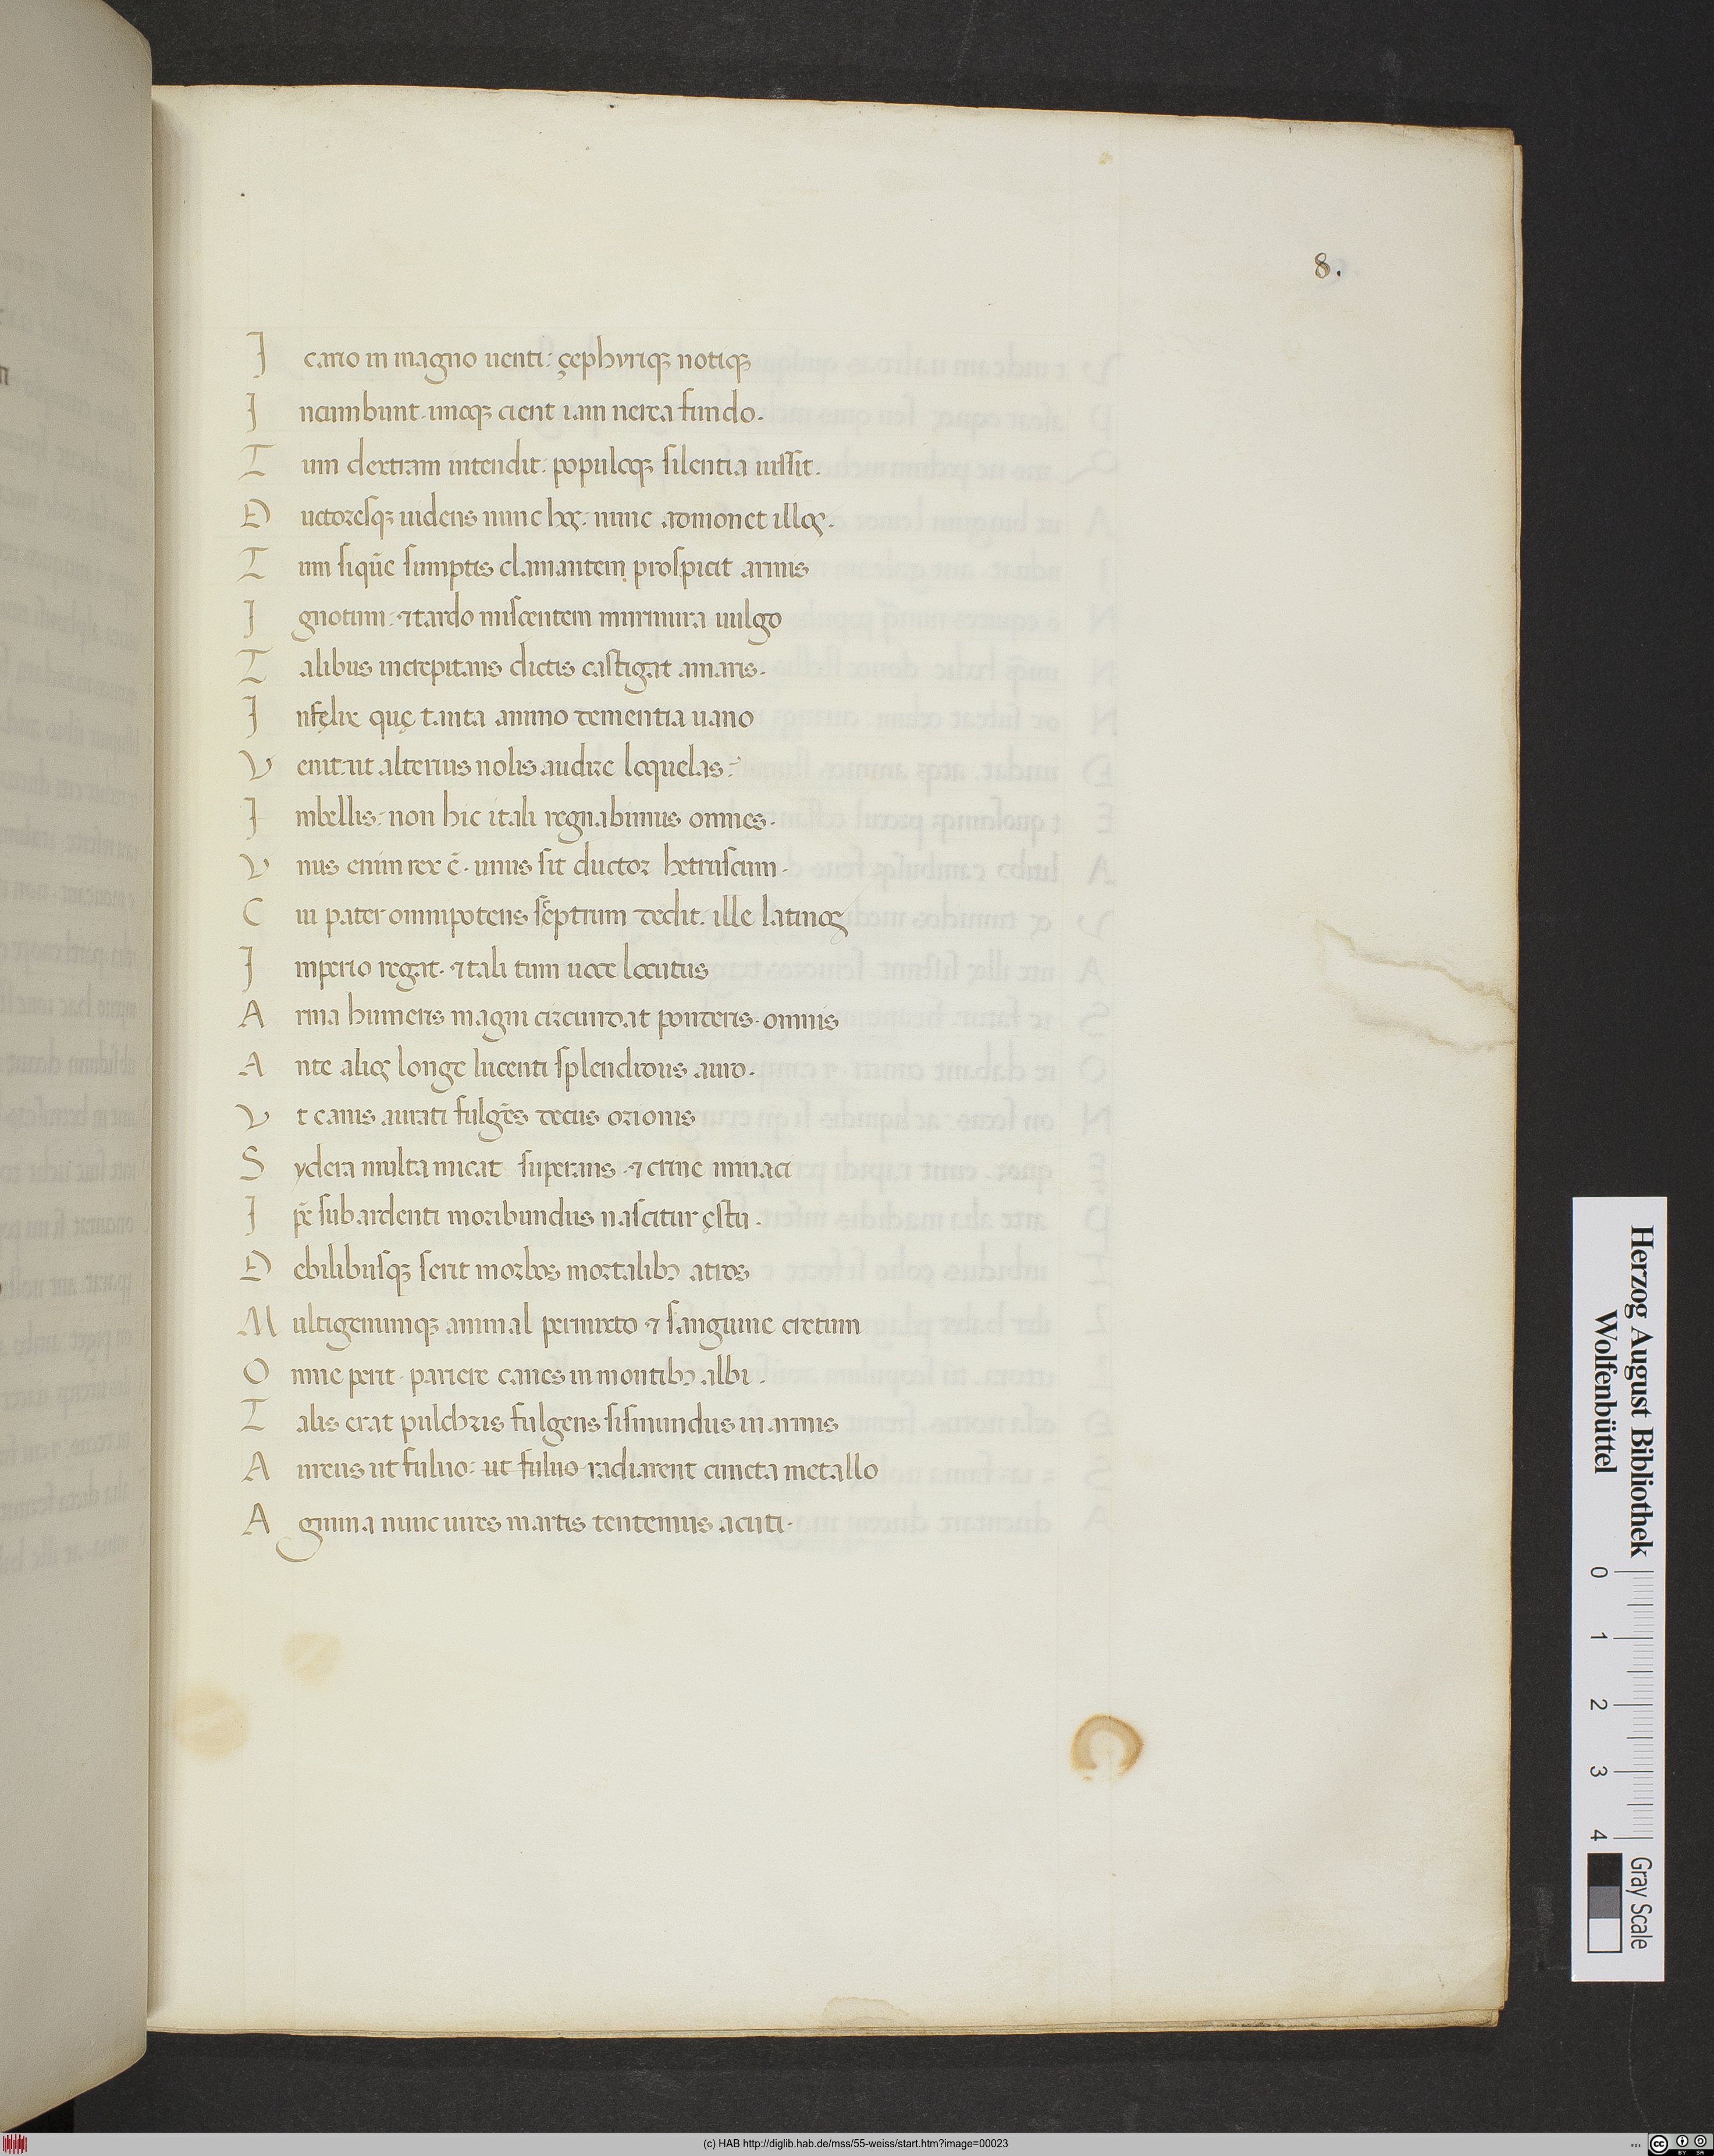 8.
I cario in magno uenti: çephyriqꝫ notiqꝫ
I ncumbunt. imoqꝫ cient iam nerea fundo.
T um dextram intendit: populoqꝫ silentia iussit.
D uctoresqꝫ uidens nunc hos: nunc admonet illos.
T um siquẽ sumptis clamantem prospicit armis
I gnotum: ⁊ tardo miscentem murmura uulgo
T alibus increpitans dictis castigat amaris.
I nfęlix quę tanta animo dementia uano
V enit: ut alterius nolis audire loquelas:
I mbellis: non hic itali regnabimus omnes.
V nus enim rex ẽ. unus sit ductor hetruscum.
C ui pater omnipotens sceptrum dedit. ille latinos
I mperio regat. ⁊ tali tum uoce locutus
A rma humeris magni circundat ponderis. omnis
A nte alios longe lucenti splendidus auro.
V t canis aurati fulgẽs decus orionis
S ydera multa micat superans. ⁊ crine minaci
I pẽ sub ardenti moribundus nascitur ęstu.
D ebilibusqꝫ serit morbos mortalibꝫ atros
M ultigenumqꝫ animal permixto ⁊ sanguine cretum
O mne perit. pariere canes in montibꝫ albi.
T alis erat pulchris fulgens sismundus in armis
A ureus ut fuluo: ut fuluo radiarent cuncta metallo
A gmina nunc uires martis tentemus acuti.
Herzog August Bibliothek
Wolfenbüttel
0 1 2 3 4
Gray Scale
(c) HAB http://diglib.hab.de/mss/55-weiss/start.htm?image=00023